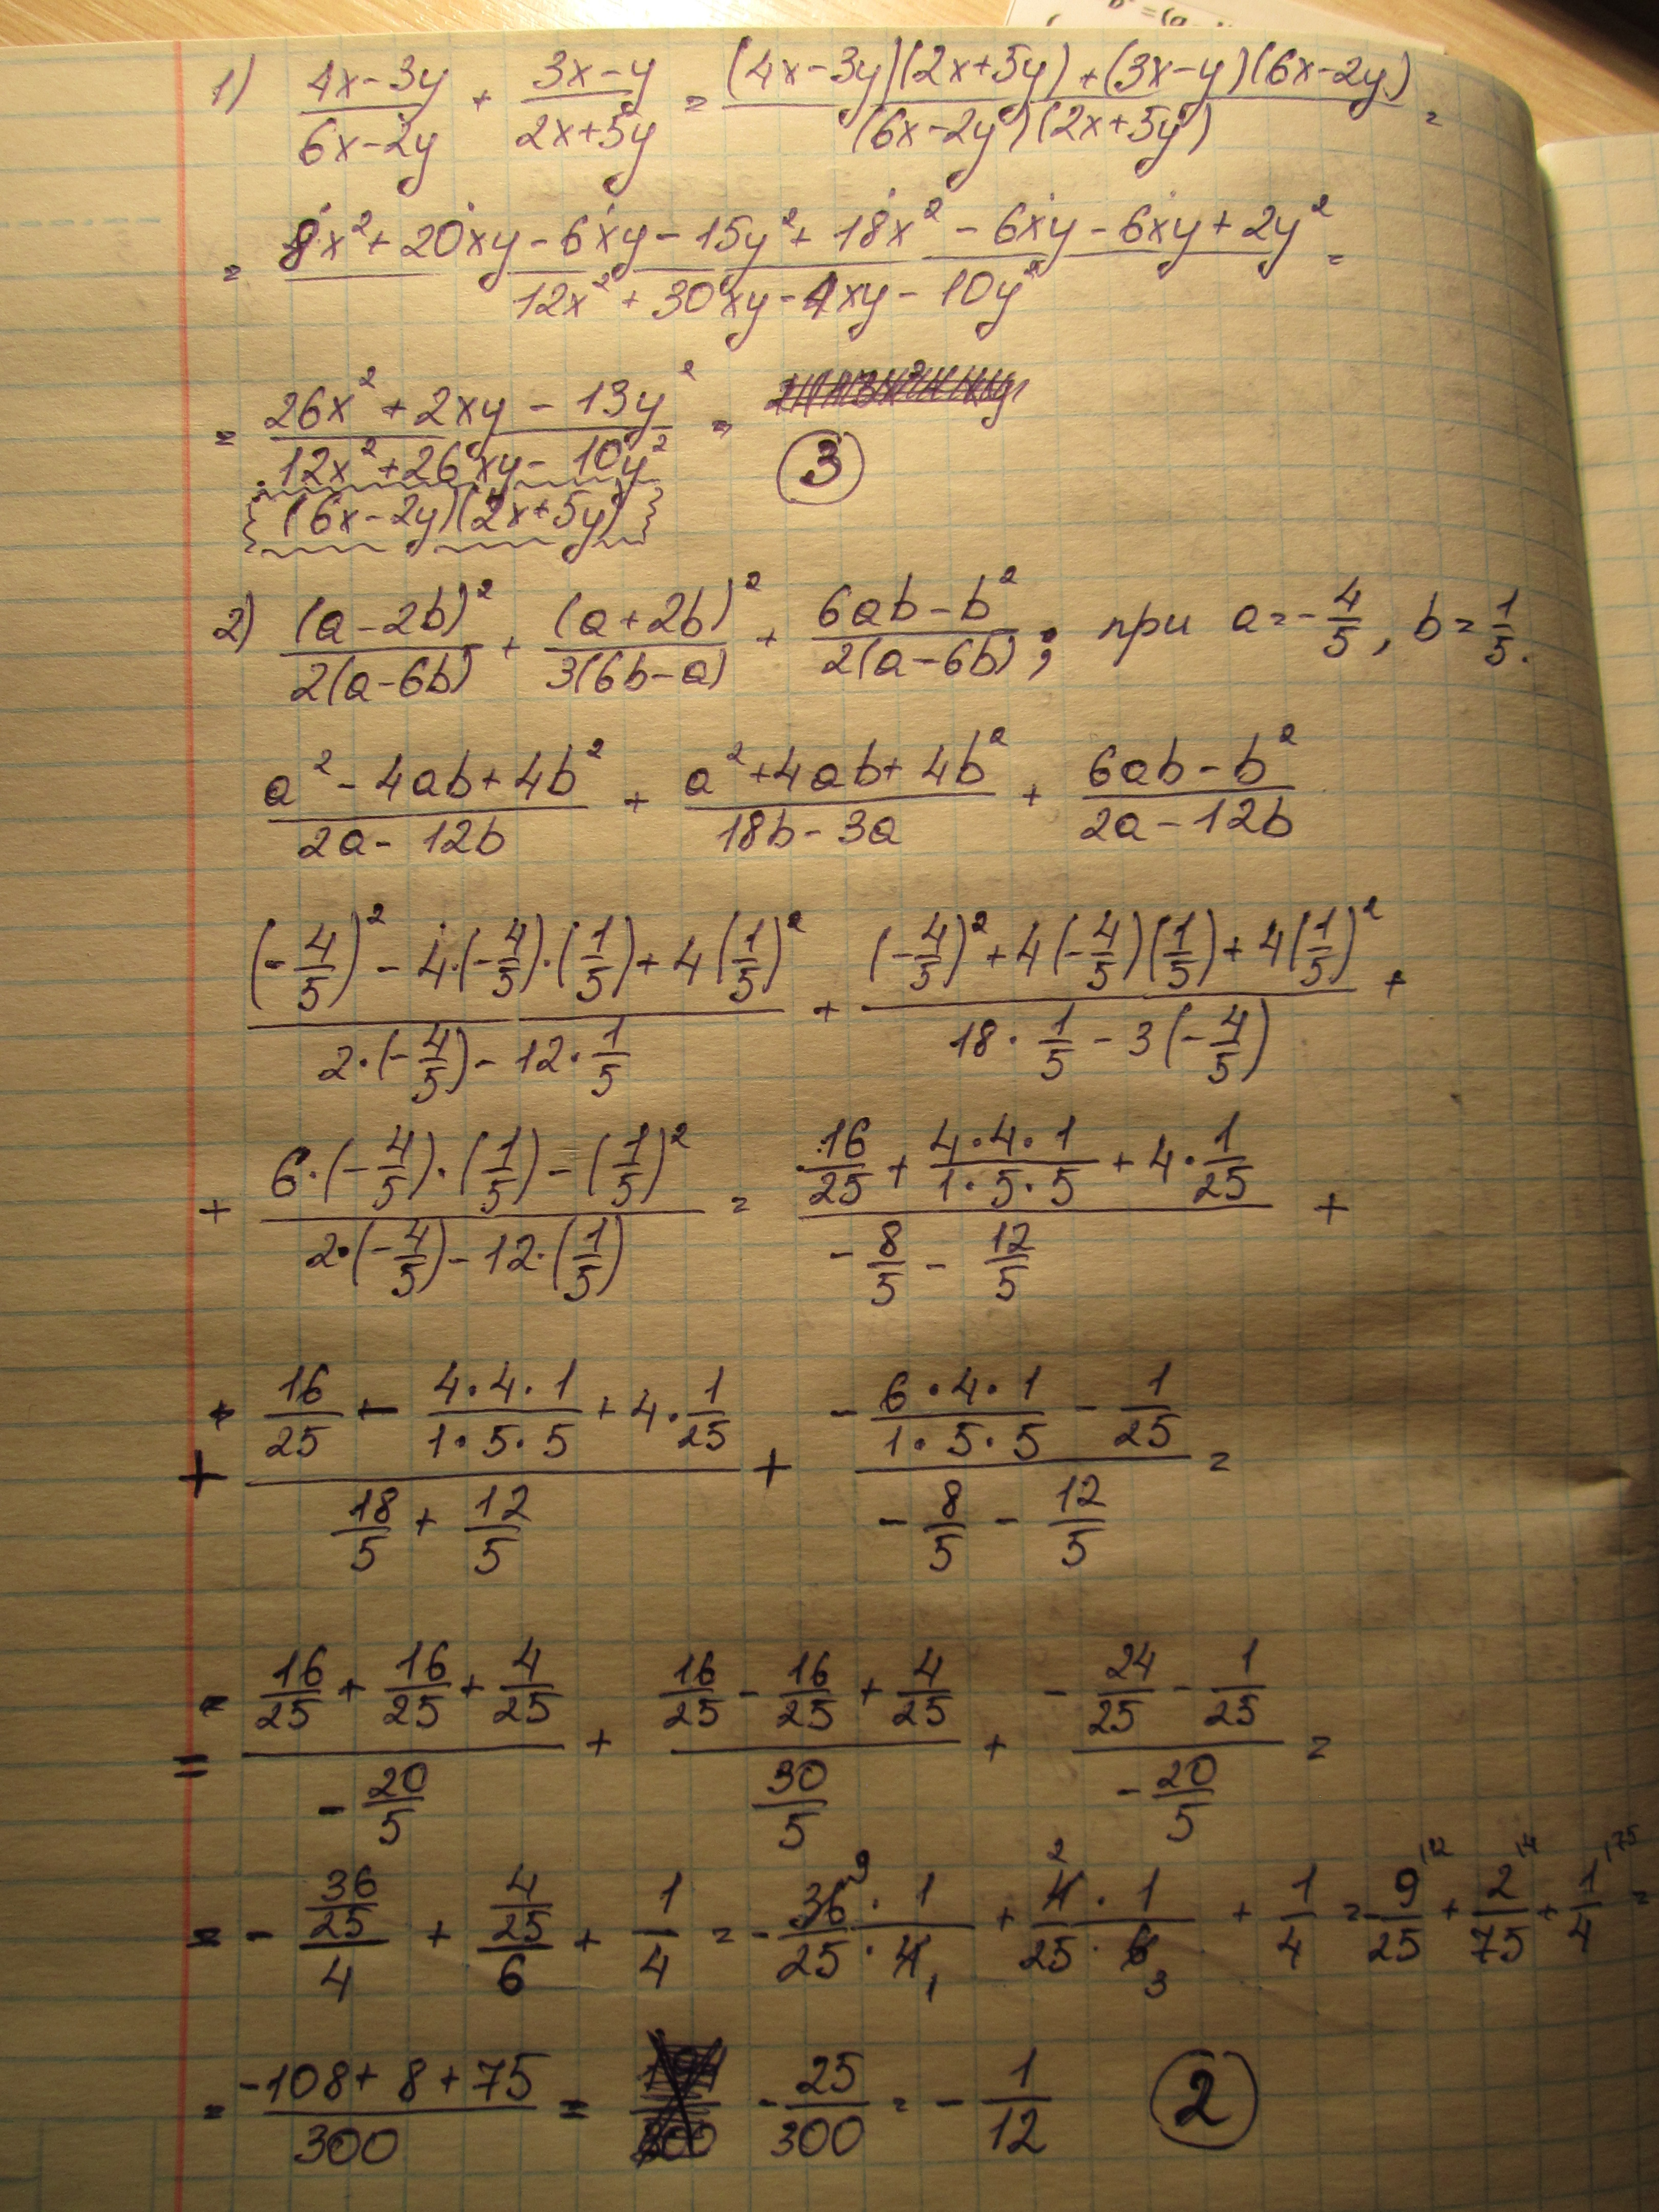 b² = (a
1) (4x-3y)/(6x-2y) + (3x-y)/(2x+5y) = ((4x-3y)(2x+5y)+(3x-y)(6x-2y))/((6x-2y)(2x+5y)) =
= (8x²+20xy-6xy-15y²+18x²-6xy-6xy+2y²)/(12x²+30xy-4xy-10y²) =
= (26x²+2xy-13y²)/(12x²+26xy-10y²) =
(6x-2y)(2x+5y)
3
2) (a-2b)²/(2(a-6b)) + (a+2b)²/(3(6b-a)) + (6ab-b²)/(2(a-6b)); при a=-4/5, b=1/5.
(a²-4ab+4b²)/(2a-12b) + (a²+4ab+4b²)/(18b-3a) + (6ab-b²)/(2a-12b)
((-4/5)²-4·(-4/5)·(1/5)+4(1/5)²)/(2·(-4/5)-12·1/5) + ((-4/5)²+4(-4/5)(1/5)+4(1/5)²)/(18·1/5-3(-4/5)) +
+ (6·(-4/5)·(1/5)-(1/5)²)/(2·(-4/5)-12·(1/5)) = (16/25+(4·4·1)/(1·5·5)+4·1/25)/(-8/5-12/5) +
+ (16/25-(4·4·1)/(1·5·5)+4·1/25)/(18/5+12/5) + (-(6·4·1)/(1·5·5)-1/25)/(-8/5-12/5) =
= (16/25+16/25+4/25)/(-20/5) + (16/25-16/25+4/25)/(30/5) + (-24/25-1/25)/(-20/5) =
= -(36/25)/4 + (4/25)/6 + 1/4 = -(36 9·1)/(25·4 1) + (4 2·1)/(25·6 3) + 1/4 = -9/25 |12 + 2/75 |4 + 1/4 |75 =
= (-108+8+75)/300 = -25/300 = -1/12
2